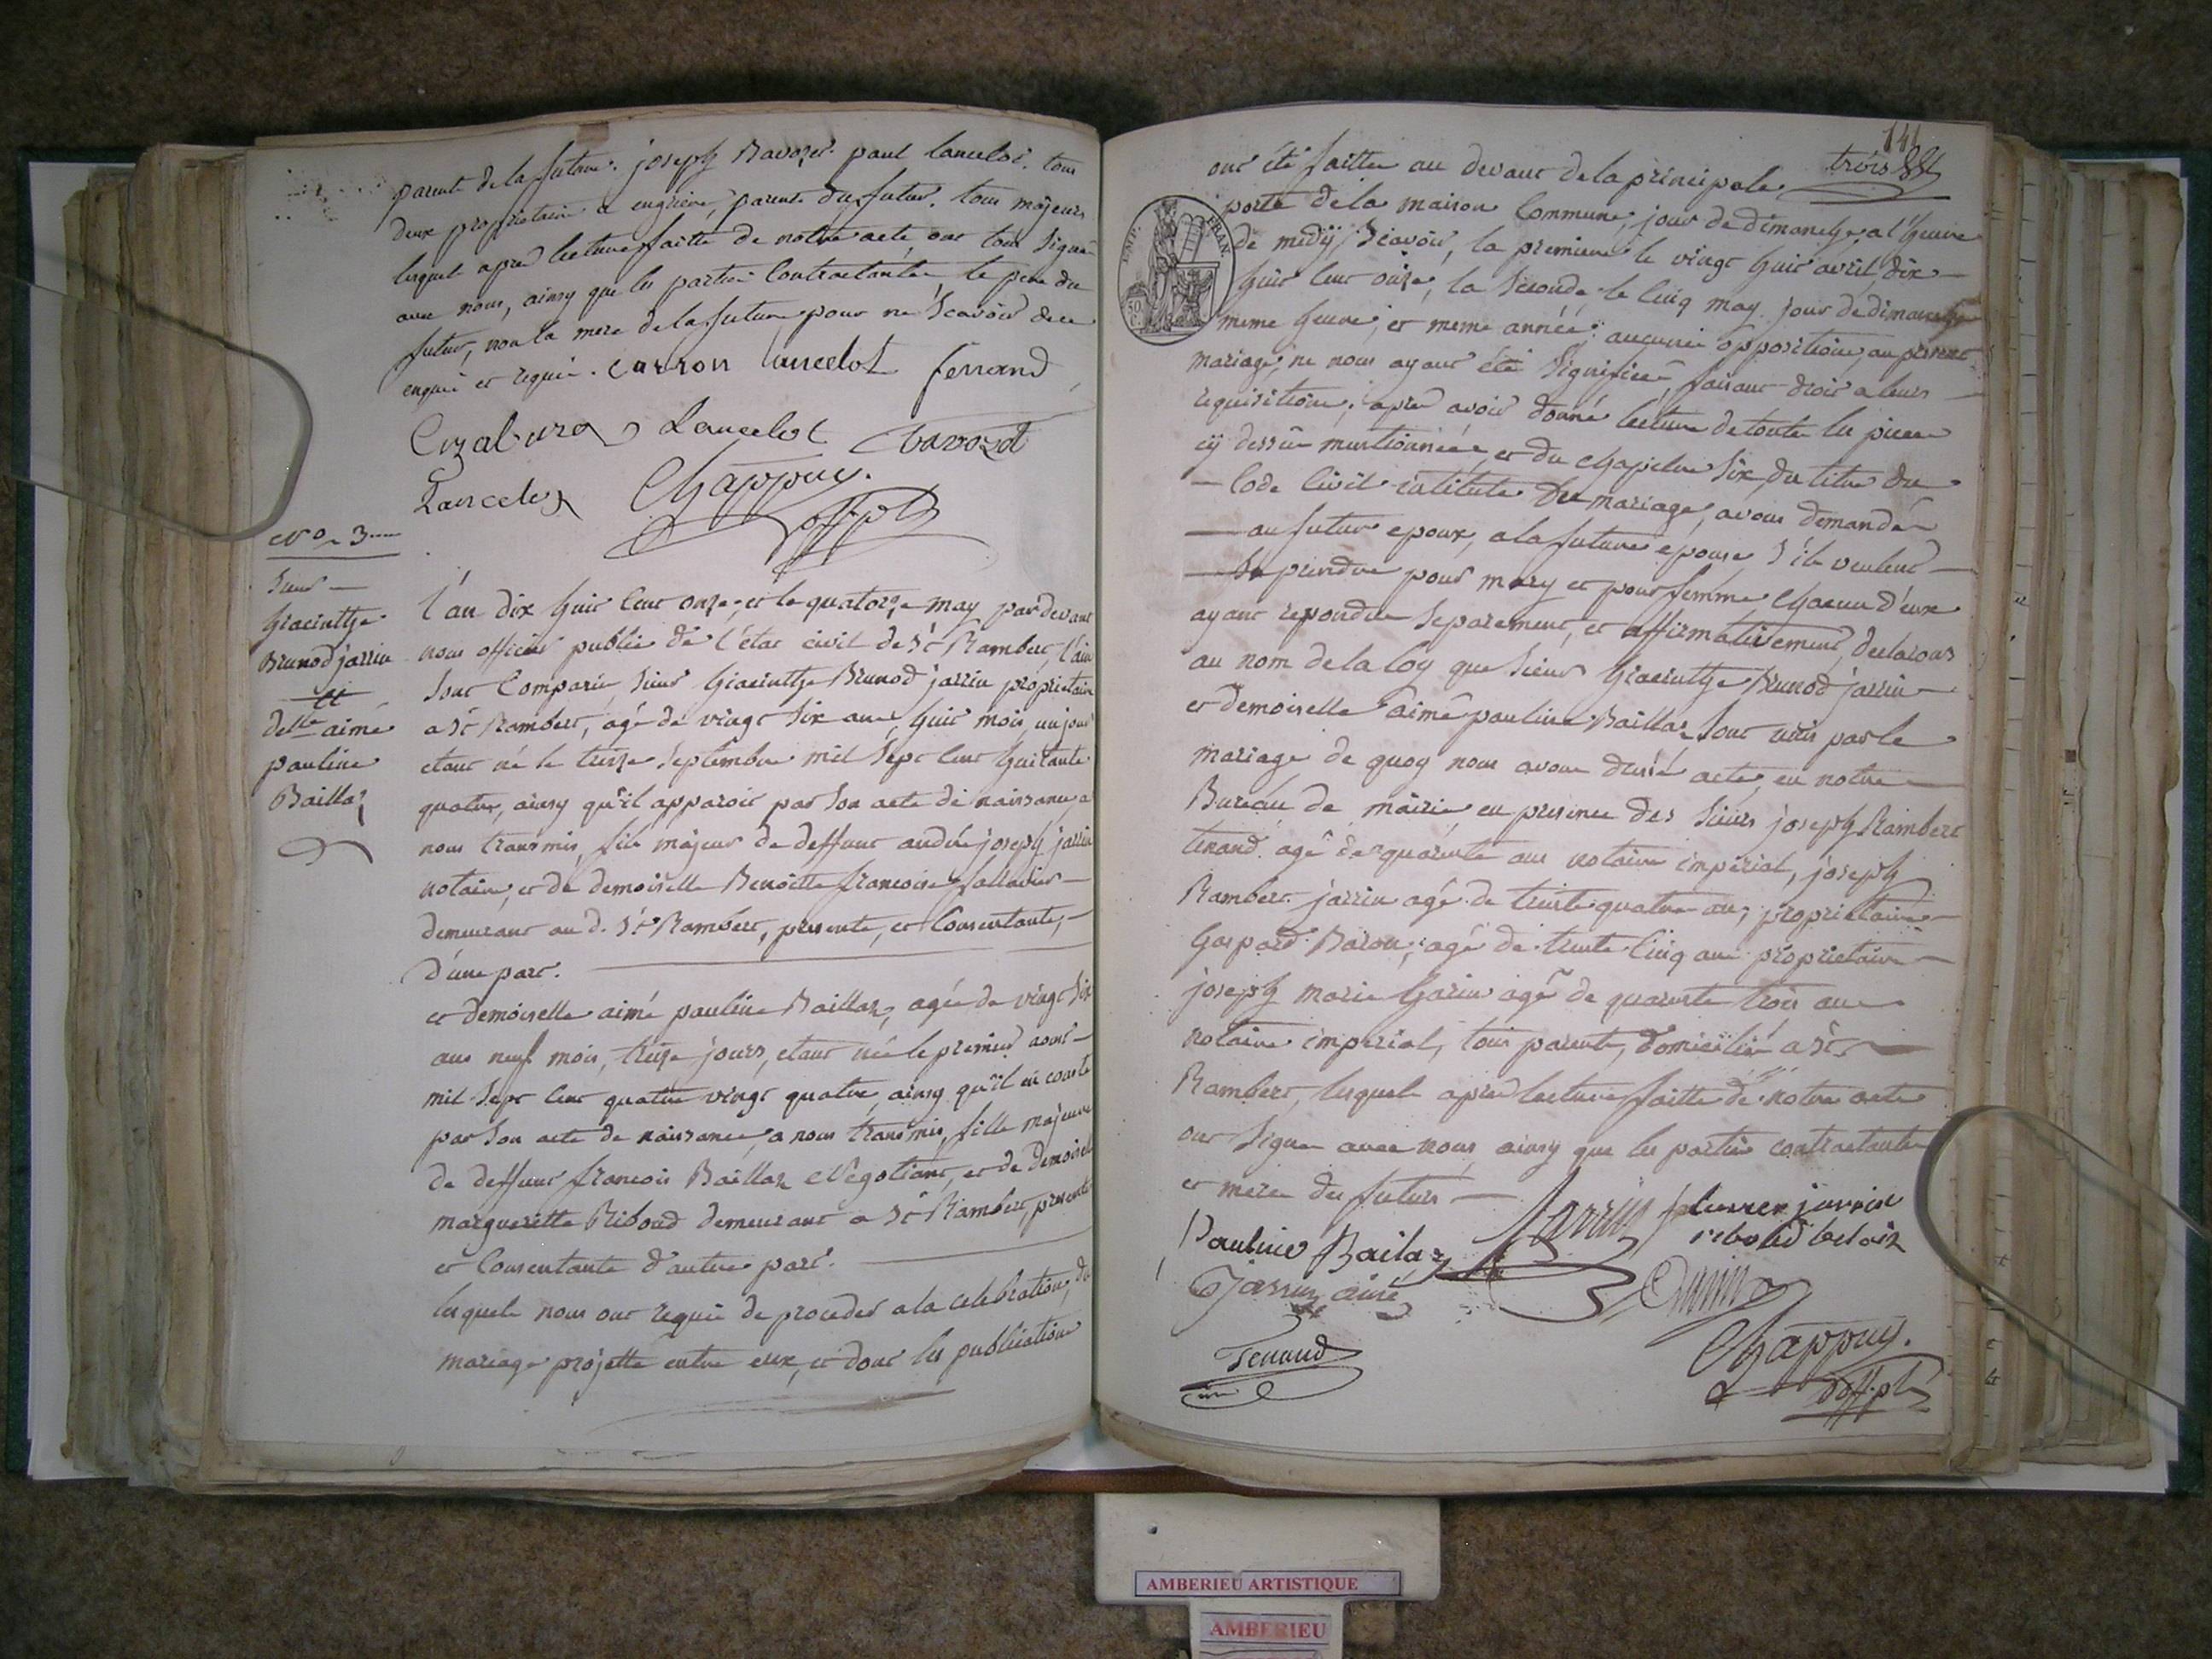 parents de la future. joseph Ravozet. paul lancelot. tous
deux proprietaires a engrieu, parents du futur. tous majeurs
lesquels apres lecture faitte de notre acte, ont tous signé
avec nous, ainsy que les parties Contractantes, le pere du
futur, non la mere de la future pour ne sçavoir de ce
enquis et requis. carron lancelot ferrand
Lancelot
Lancelot Chappuy.
off. pb.
N° 3
Sieur
hiacinthe
Brunod jarrin
et
delle aimé
pauline
Baillaz
l'an dix huit cent onze, et le quatorze may par devant
nous officier public de l'état civil de St Rambert, l'ain
sont Comparus sieur hiacinthe Brunod jarrin proprietaire
a St Rambert, agé de vingt six ans, huit mois, un jour
etant né le treize septembre mil sept cent huitante
quatre, ainsy qu'il apparoit par son acte de naissance, a
nous transmis, fils majeur de deffunt andré joseph jarrin
notaire, et de demoiselle Benoitte francoise
demeurant au d. St Rambert, presente, et Consentante,
d'une part.
et demoiselle aimé pauline Baillaz, agée de vingt six
ans neuf mois, treize jours, etant née le premier aout
mil sept cent quatre vingt quatre, ainsy qu'il en conste
par son acte de naissance, a nous transmis, fille majeure
de deffunt francois Baillaz Negotiant, et de demoiselle
margueritte Riboud demeurant a St Rambert, presente
et Consentante d'autre part.
lesquels nous ont requis de proceder a la celebration, du
mariage projetté entre eux, et dont les publications
141
ont été faittes au devant de la principale trois
porte de la maison Commune, jour de dimanche, a l'heure
de midÿ, Sçavoir, la premiere le vingt huit avril, dix
huit cent onze, la seconde le cinq may jour de dimanche
meme heure, et meme année: aucune opposition, au present
mariage, ne nous ayant été signifiée, faisant droit a leurs
requisitions; apres avoir donné lecture de toutes les pieces
cÿ dessus mentionnées, et du chapitre six, du titre du
Code Civil intitulé du mariage, avons demandé
au futur epoux, a la future epouse s'ils veulent
se prendre pour mary et pour femme, chacun d'eux
ayant repondu separement, et affirmativement, declarons
au nom de la loy que sieur hiacinthe Brunod jarrin
et demoiselle aimé pauline Baillaz sont unis par le
mariage de quoy nous avons dressé acte, en notre
Bureau de mairie en presence des sieurs joseph Rambert
tenand agé de quarante ans notaire imperial, joseph
Rambert jarrin agé de trente quatre ans, proprietaire
Gaspard Baron, agé de trente cinq ans proprietaire
joseph marie Garin agé de quarante trois ans
notaire imperial, tous parents, domiciliés a St
Rambert, lesquels apres lecture faitte de notre acte
ont signé avec nous ainsy que les parties contractantes
et meres des futurs
Pauline Bailaz Jarrin jarrin
riboud
Jarrin ainé
Tenand
Chappuy.
off. pb.
EMP. FRAN.
50
AMBERIEU ARTISTIQUE
AMBERIEU